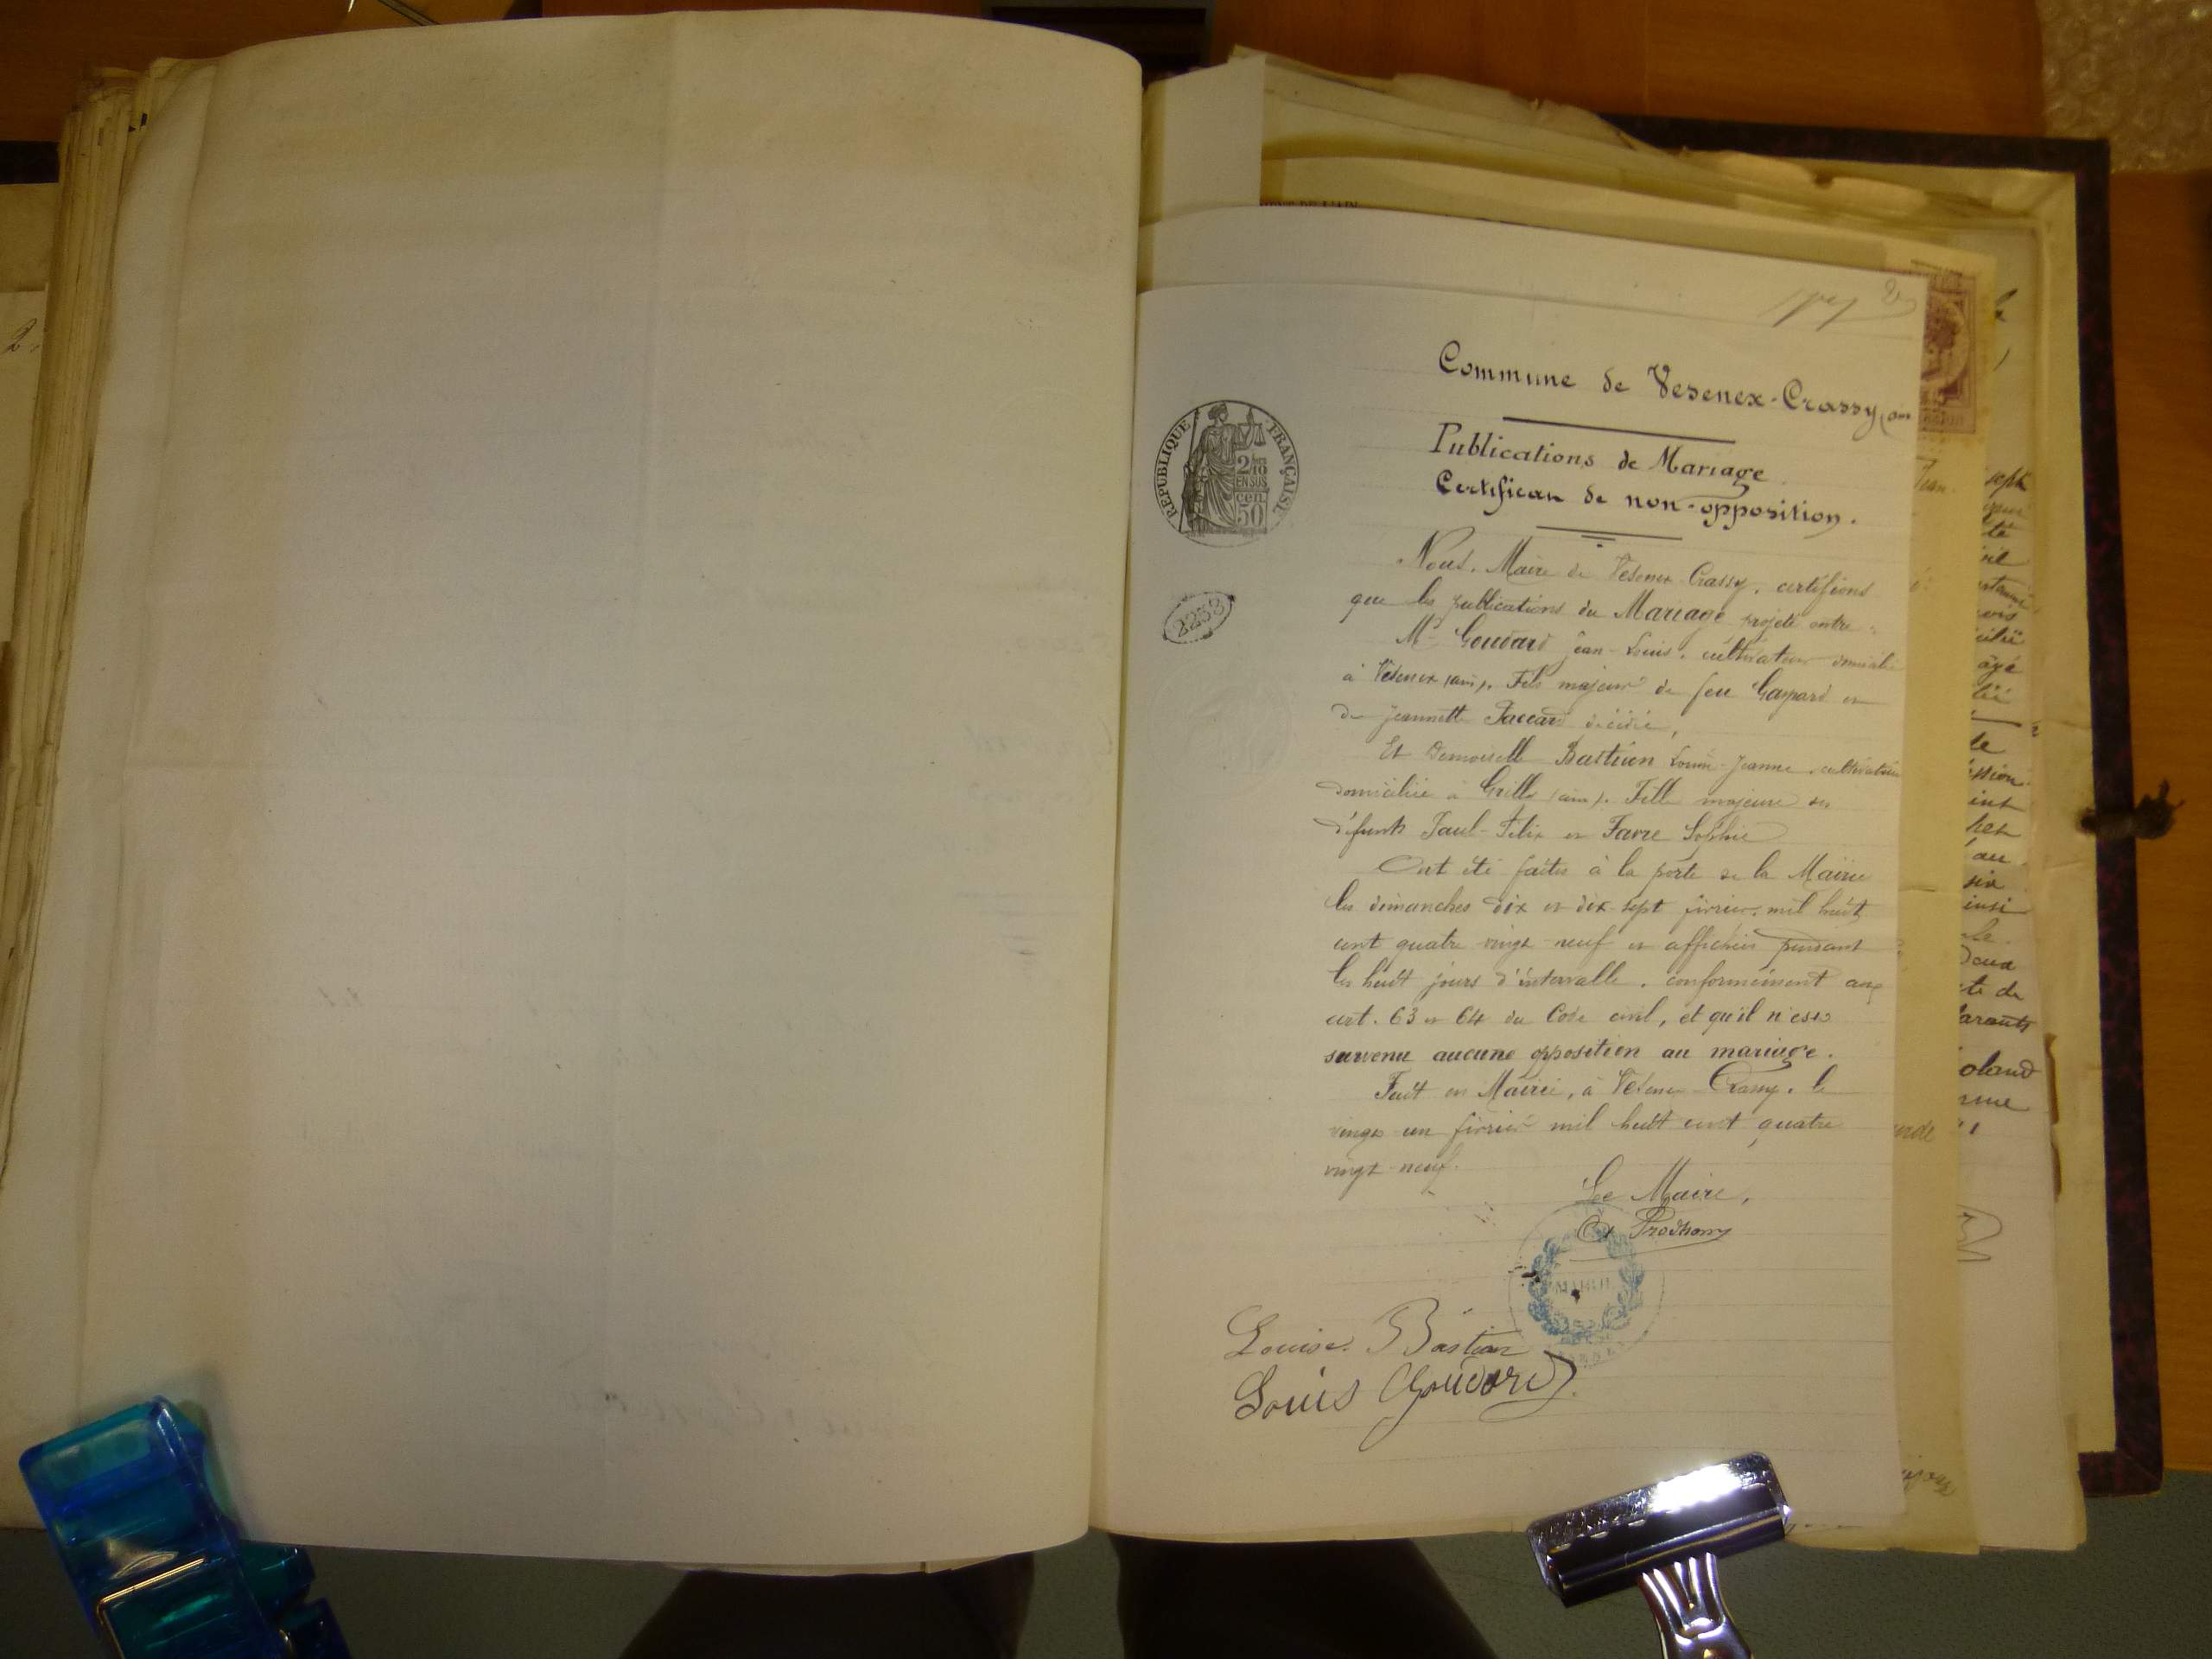 2
Commune de Vesenex-Crassy (ain
Publications de Mariage.
Certificat de non-opposition.
RÉPUBLIQUE FRANÇAISE
2/10 EN SUS
cen 50
2253
Nous, Maire de Vesenex Crassy, certifions
que les publications du Mariage projeté entre :
Mr Goudard Jean-Louis, cultivateur domicilié
à Vesenex (ain). Fils majeur de feu Gaspard et
de Jeannette Paccard décédée,
Et Demoiselle Bastian Louise-Jeanne, cultivatrice
domiciliée à Grilly (ain). Fille majeure des
défunts Paul-Félix et Favre Sophie
Ont été faites à la porte de la Mairie
les dimanches dix et dix-sept février, mil huit
cent quatre vingt-neuf et affichées pendant
les huit jours d'intervalle, conformément aux
art. 63 et 64 du Code civil, et qu'il n'est
survenu aucune opposition au mariage.
Fait en Mairie, à Vesenex-Crassy, le
vingt un février mil huit cent quatre
vingt-neuf.
Le Maire,
Prodhom
MAIRIE
Louise Bastian
Louis Goudard